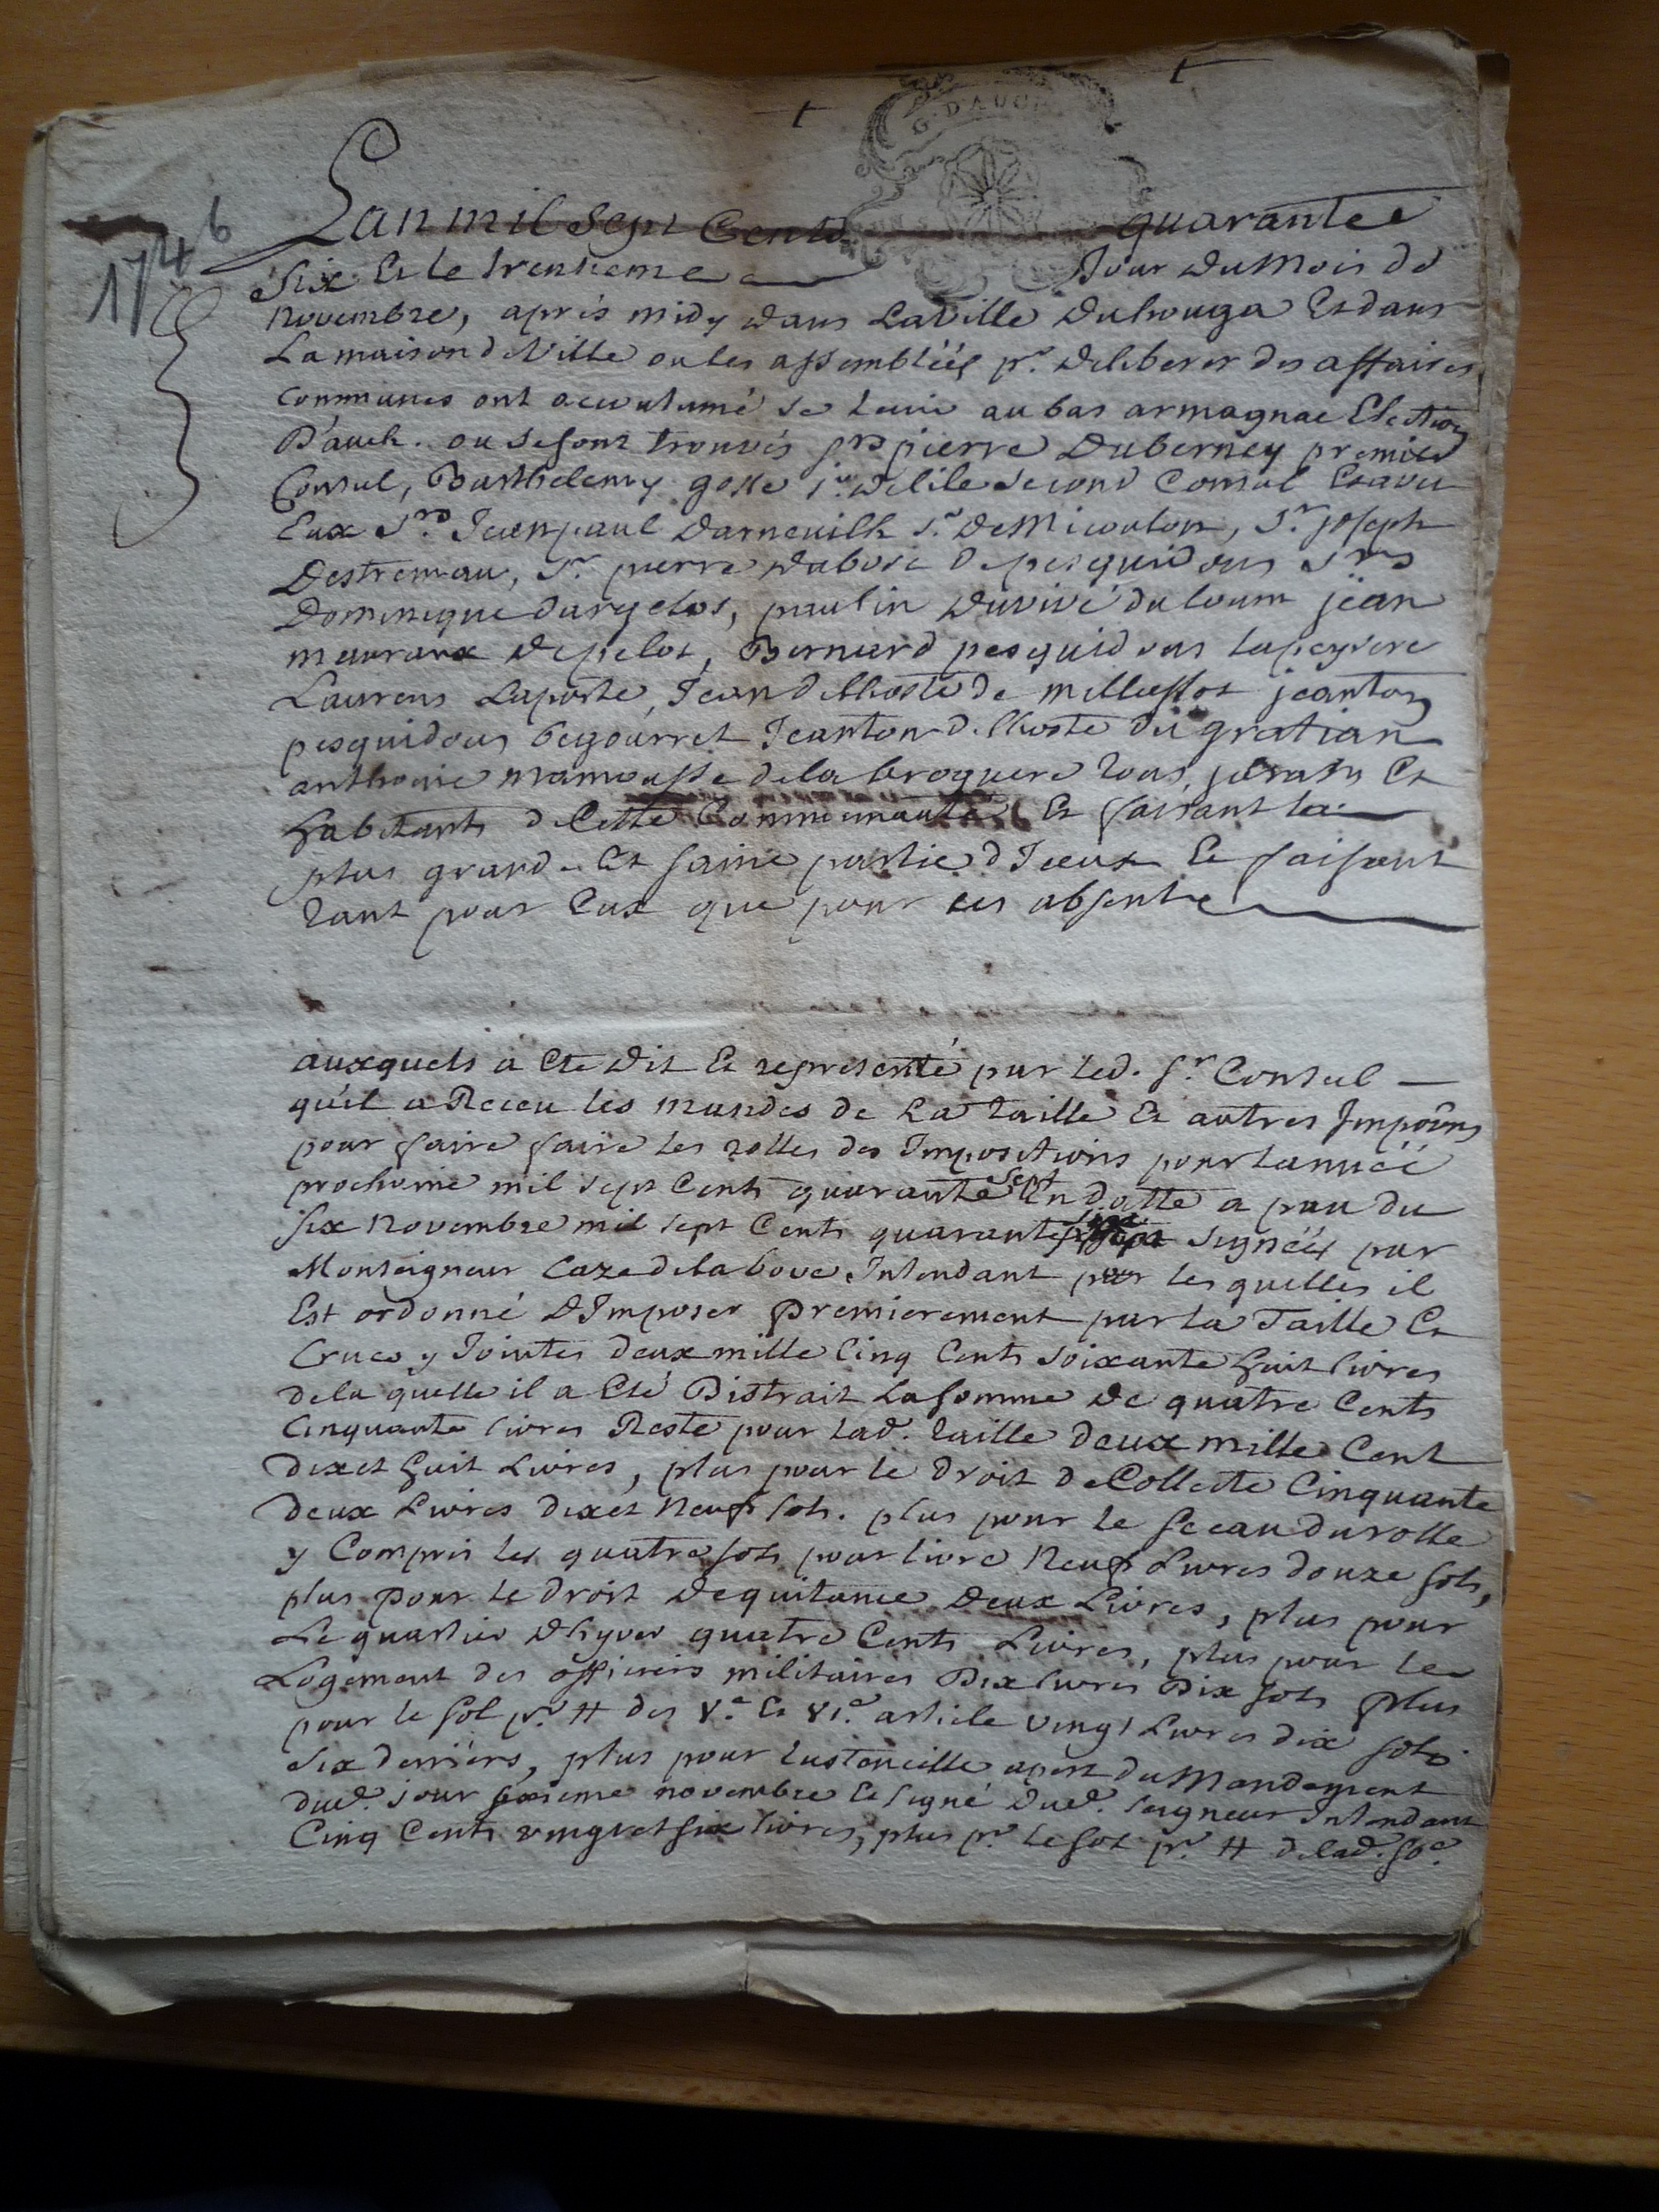 G. D'AUCH
1746
Lan mil sept Cents quarante
six Et le trentieme Jour du Mois de
novembre, aprés midy dans La Ville Duhouga Et dans
La maison de Ville ou les assembléés pr. deliberer des affaires
communes ont accoutumé se tenir au bas armagnac Election
D'auch. ou se sont trouvés srs pierre Duberney premier
Consul, Barthelemy gosse sr. delile second Consul Et avec
Eux Srs. Jean paul Darneuilh sr. De Micoulon, Sr. joseph
Destremau, Sr. pierre dubosc de pesquidous Srs
Dominique dargelos, paulin duvivé du loum jéan
meurans depelot, Bernard pesquidous lapeyrere
Laurens Laporte, Jean delhoste de millesfos jeanton
pesquidous begourret Jeanton delhoste du gratian
anthoine mamousse de la broquere tous jurats Et
habitants de Cette Communauté Et faisant la
plus grande Et saine partie d'Iceux Et faisant
tant pour Eux que pour les absents
auxquels a Eté dit Et representé par led. sr. Consul
qu'il a Receu les mandes de La taille Et autres Impôons
pour faire faire les rolles des Impositions pour lannéé
prochaine mil sept Cents quarante sept En datte a pau du
six novembre mil sept Cents quarante six signéés par
Monseigneur Caze de la bove Intendant par les quelles il
Est ordonné D'Imposer premierement pour la Taille Et
Crues y Jointes deux mille Cinq Cents soixante huit livres
de la quelle il a Eté Distrait La somme de quatre Cents
Cinquante livres Reste pour lad. taille deux mille Cent
dix et huit Livres, plus pour le droit de Collette Cinquante
deux Livres dix et neuf sols. plus pour le sceau du rolle
y Compris les quatre sols pour livre neuf Livres douze sols,
plus pour le droit de quitance deux Livres, plus pour
Le quartier dhyver quatre Cents Livres, plus pour le
Logement des officiers militaires Dix livres Dix sols plus
pour le sol pr. ₶ des Ve. Et VIe. article vingt Livres dix sols
six deniers, plus pour lustancille apert du Mandement
dud. jour sixieme novembre Et signé dud. seigneur Intendant
Cinq Cents vingt et six livres, plus pr. le sol pr. ₶ de lad. soe.